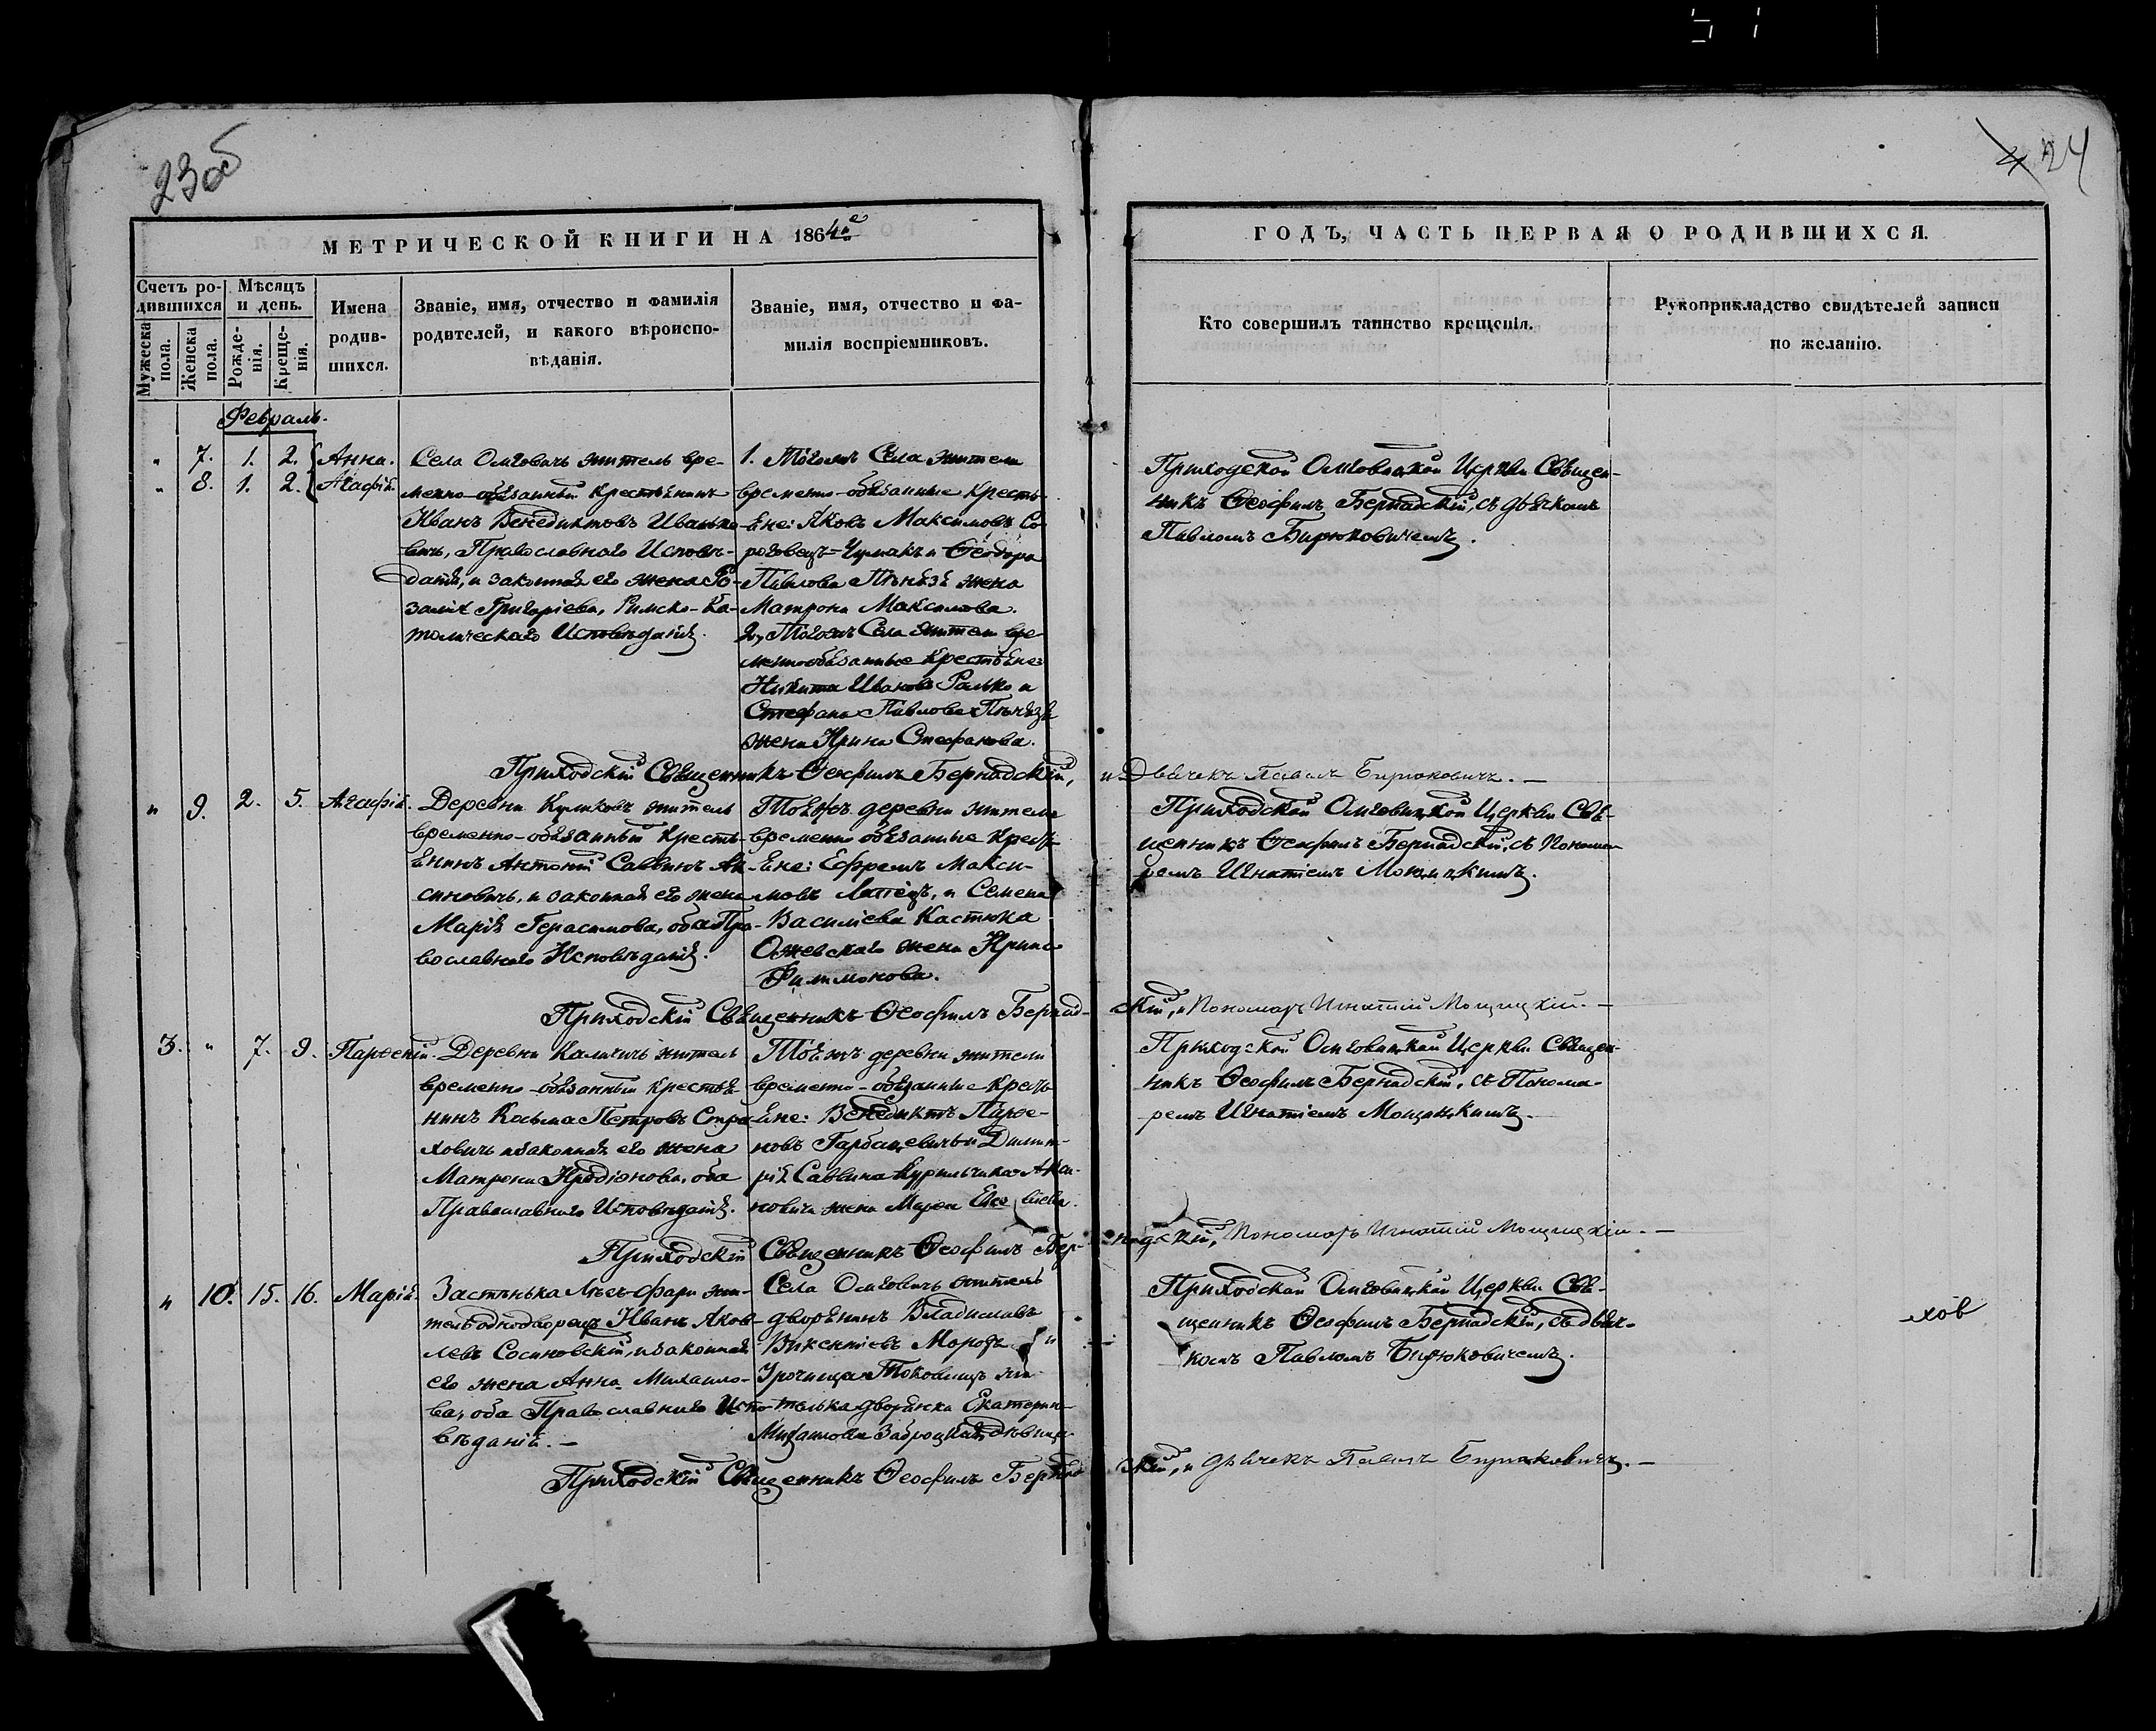 23об
24
МЕТРИЧЕСКОЙ КНИГИ НА 1864е
ГОДЪ, ЧАСТЬ ПЕРВАЯ О РОДИВШИХСЯ.
Счетъ родившихся
Мужеска пола.
Женска пола.
Мѣсяцъ и день.
Рожденія.
Крещенія.
Имена родившихся.
Званіе, имя, отчество и фамилія
родителей, и какого вѣроиспо-
вѣданія.
Званіе, имя, отчество и фа-
милія воспріемниковъ.
Кто совершилъ таинство крещенія.
Рукоприкладство свидѣтелей записи
по желанію.
Февраль.
" 7. 1. 2. Анна.
" 8. 1. 2. Агафія.
Села Омговичъ житель вре-
менно-обязанный Крестьянинъ
Иванъ Венедиктовъ Ивашке-
вичъ, Православнаго Исповѣ-
данія, и законная его жена Ро-
залія Григоріева, Римско-Ка-
толическаго Исповѣданія.
1. Тогожъ Села жители
временно-обязанные Кресть-
яне: Яковъ Максимовъ
Чумакъ и Ѳеодора
Павлова жена
Матрона Максимова.
2, Тогожъ Села жители вре-
меннообязанные Крестьяне:
Никита Ивановъ Ралько и
Стефана Павлова
жена Ирина Стефанова.
Приходской Омговицкой Церкви Священ-
никъ Ѳеофилъ Бернадскій, съ дьячкомъ
Павломъ Бирюковичемъ.
Приходскій Священникъ Ѳеофилъ Бернадскій, и Дьячекъ Павелъ Бирюковичъ.
" 9. 2. 5. Агафія.
Деревни Куликовъ житель
временно-обязанный Кресть-
янинъ Антоній Саввинъ Ак-
синовичъ, и законная его жена
Марія Герасимова, оба Пра-
вославнаго Исповѣданія.
Тояжъ деревни жители
временно обязанные Кресть-
яне: Ефремъ Макси-
мовъ Лапецъ, и Семена
Василіева Кастюка
Ожевскаго жена Ирина
Филимонова.
Приходской Омговицкой Церкви Свя-
щенникъ Ѳеофилъ Бернадскій, съ Понома-
ремъ Игнатіемъ Мощицкимъ.
Приходскій Священникъ Ѳеофилъ Бернадскій, и Пономарь Игнатій Мощицкій.
3. " 7. 9. Парѳеній.
Деревни Каличичъ житель
временно-обязанный Крестья-
нинъ Косьма Петровъ Стра-
ховичъ и законная его жена
Матрона Иродіонова, оба
Православнаго Исповѣданія.
Тояжъ деревни жители
временно-обязанные Кресть-
яне: Венедиктъ Парѳе-
новъ Гарбацевичъ и Димит-
рія Саввина Курильчика-Акси-
новича жена Марѳа
Приходской Омговицкой Церкви Священ-
никъ Ѳеофилъ Бернадскій, съ Понома-
ремъ Игнатіемъ Мощицкимъ.
Приходскій Священникъ Ѳеофилъ Бернадскій, Пономарь Игнатій Мощицкій.
" 10. 15. 16. Марія.
Застѣнька жи-
тель однодворецъ Иванъ Яков-
левъ Сосновскій, и законная
его жена Анна Михаило-
ва, оба Православнаго Испо-
вѣданія.
Села Омговичъ житель
дворянинъ Владиславъ
Викентіевъ Морозъ и
Урочища Токовищъ жи-
телька дворянка Екатерина
Михаилова Заброцкая дѣвица
Приходской Омговицкой Церкви Свя-
щенникъ Ѳеофилъ Бернадскій, съ дьяч-
комъ Павломъ Бирюковичемъ.
Приходскій Священникъ Ѳеофилъ Бернадскій, и дьячекъ Павелъ Бирюковичъ.